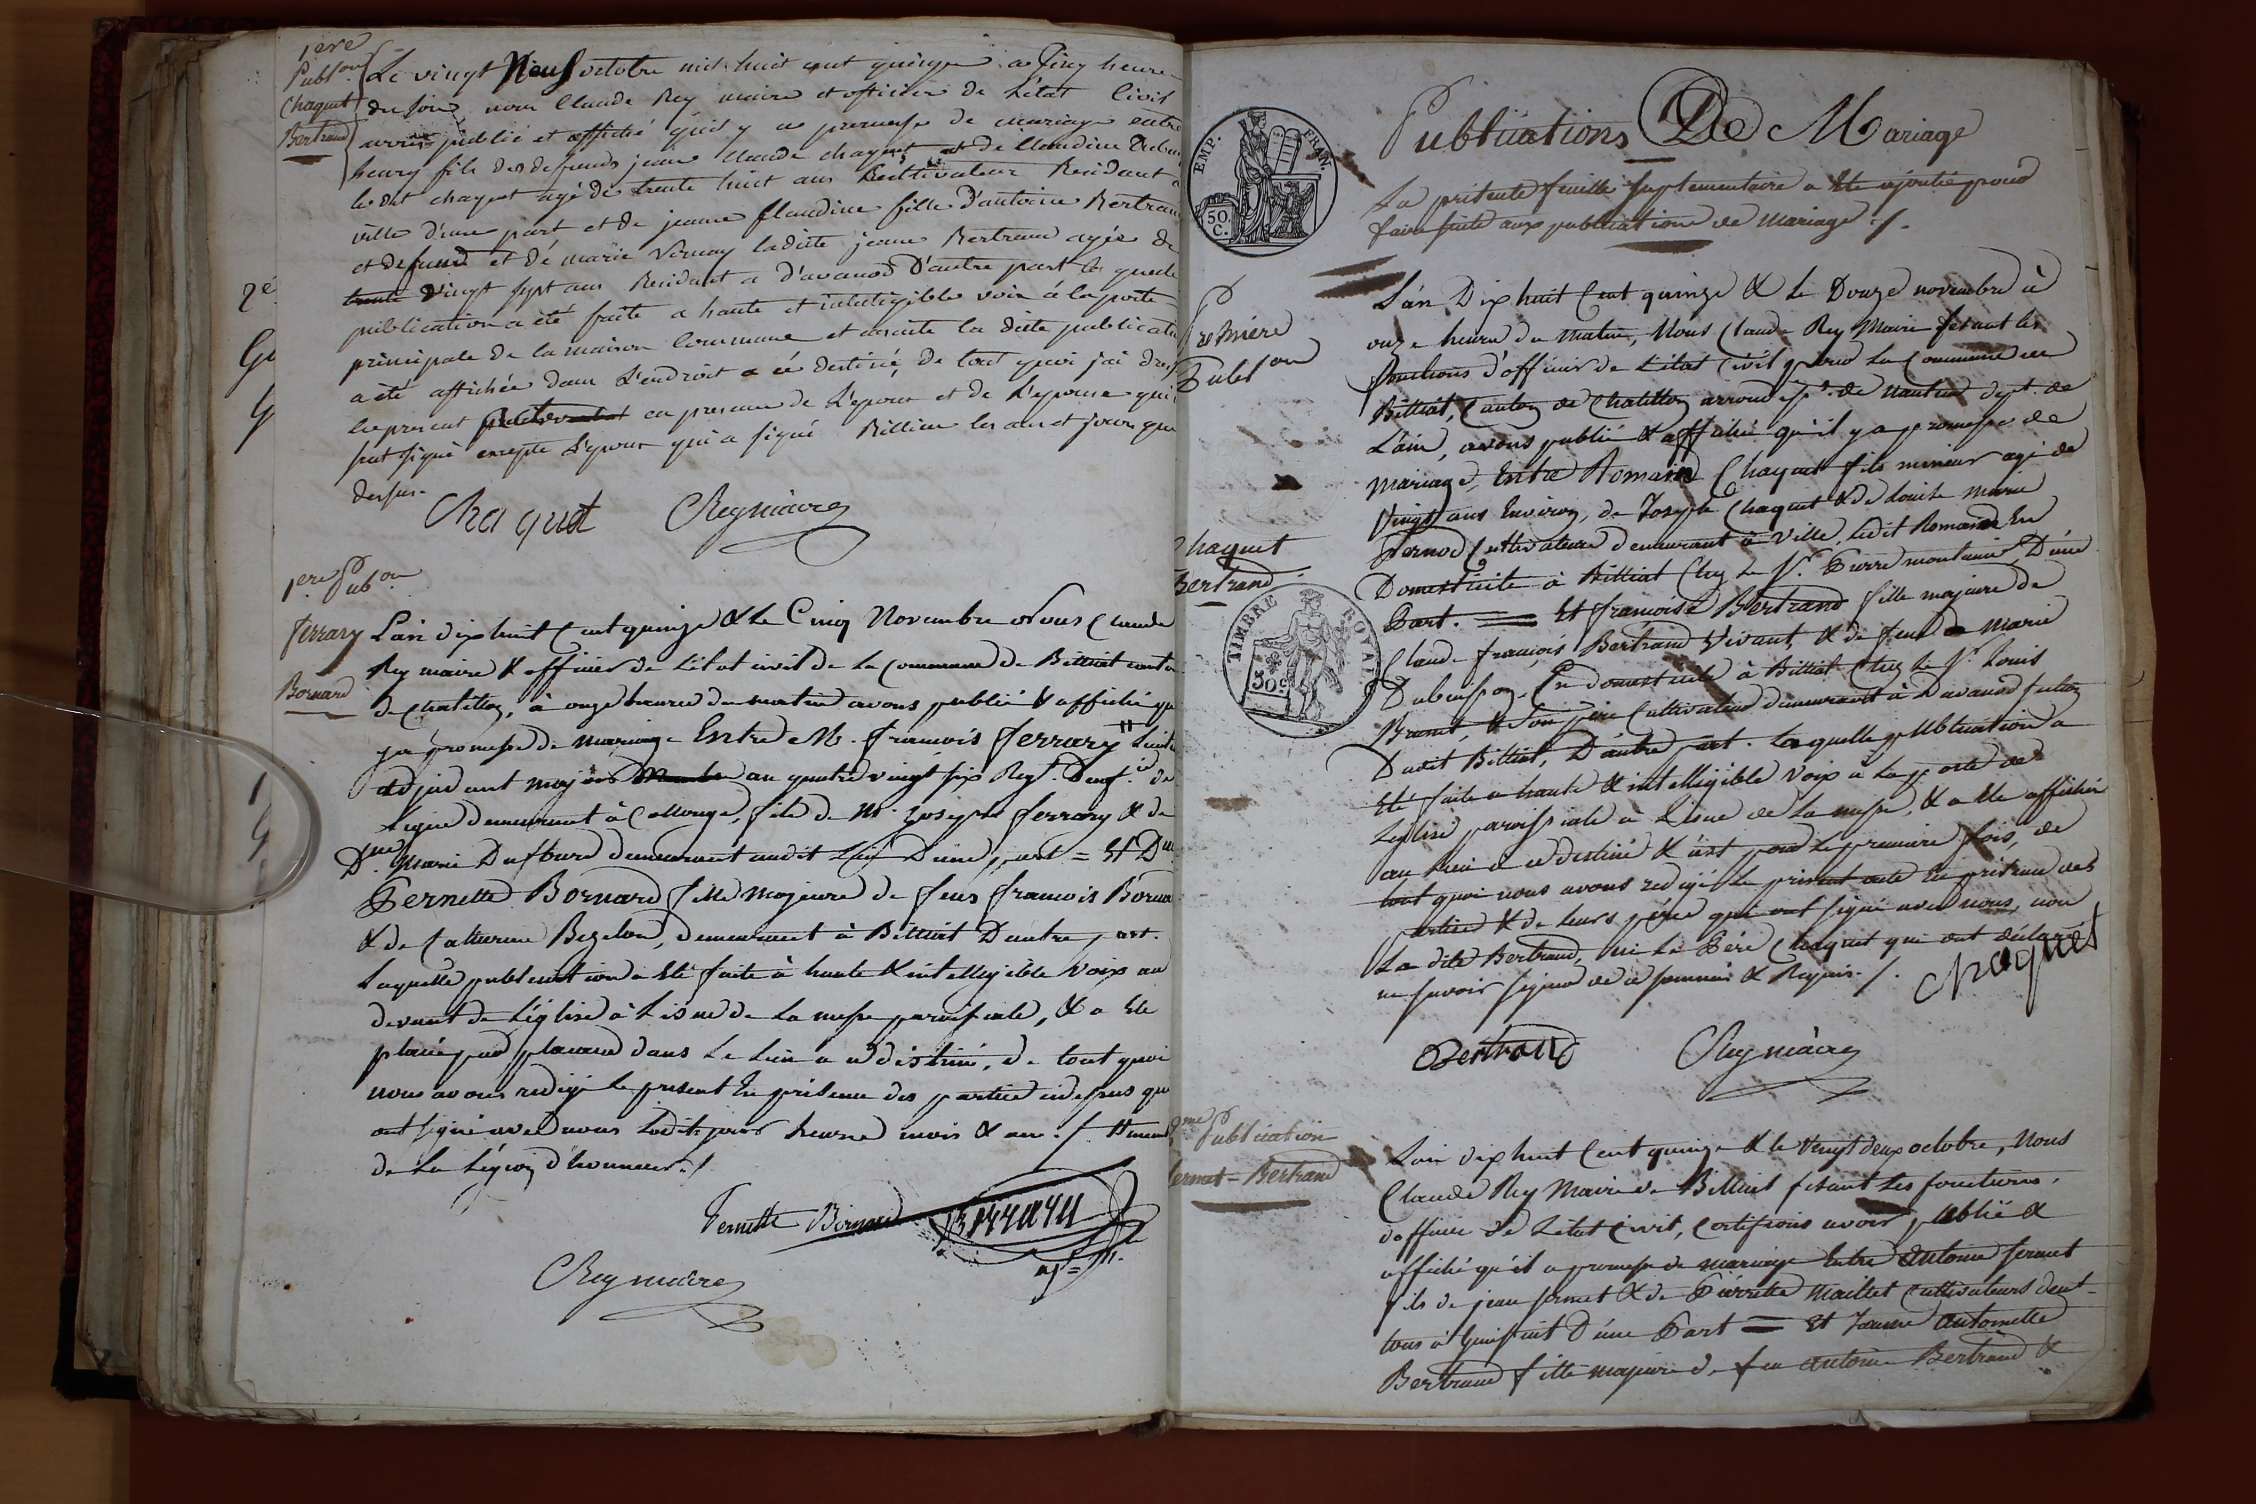 1ere
Publ.on
Chaquet
Bertrand
Le vingt Neuf octobre mil huit cent quinze a cinq heure
du soir, nous Claude Rey maire et officier de L'état Civil
avons publié et affiché qu'il y a promesse de mariage entre
henry fils des defunds jean Claude chaquet et de Claudine
le dit chaquet agé de trente huit ans Cultivateur Residant a
ville d'une part et de jeanne Claudine fille d'antoine Bertrand
et defund et dé marie Vernay laditte jeane Bertrand agée de
trente vingt sept ans Residant a d'avanod D'autre part la quelle
publication a été faitte a haute et intelligible voix a la porte
principale de la maison Commune et ensuite la ditte publication
a été affichée dans L'endroit a ce destiné, de tout quoi j'ai dressé
le present en presence de L'epoux et de L'epouse qui
sut signé excepte L'epoux qui a signé Billiat les an et jour que
dessus.
Chaquet Rey maire
1ere Pub.on
Ferrary
Bornard
L'an dix huit Cent quinze & Le Cinq Novembre Nous Claude
Rey maire & officier de L'état civil de La Commune de Billiat canton
de Chatillon, à onze heures du matin avons publié & affiché qu'il
ya promesse de mariage Entre Mr. francois ferrary "
adjudant major au quatre vingt six Regt. D'inf.ie de
Ligne demeurant à Collonge, fils de Mr. Joseph ferrary & de
D.me Marie Dufbure demeurant audit Lieu D'une part = Et Dlle
Pernette Bornard fille Majeure de feus francois Bornard
& de Catherine Bezelon, demeurant à Billiat D'autre part.
Laquelle publication a Eté faite à haute & intelligible voix au
devant de L'église à L'isue de La messe paroissiale, & a Eté
placé par placard dans Le Lieu a ce déstiné, de tout quoi
nous avons redigé le présent En présence des parties cidessus qui
ont signé avec nous Lesdits jour heure mois & an ./. "membre
de La Légion d'honneur ./.
Pernette Bornard Ferrary
Rey maire
Publications De Mariage
EMP. FRAN.
50. C.
La présente feuille suplementaire a Eté ajoutée pour
faire suite aux publications de Mariage ./.
Premiere
Publ.on
Chaquet
Bertrand
TIMBRE ROYAL
50.c
L'an Dix huit Cent quinze & Le Douze novembre à
onze heures du Matin, Nous Claude Rey Maire fesant les
fonctions d'officier de L'état Civil pour La Commune de
Billiat, Canton de Chatillon arrondisst. de Nantua dept. de
L'ain, avons publié & affiché qu'il y a promesse de
Mariage, Entre Romain Chaquet fils mineur agé de
Vingt ans Environ, de Joseph Chaquet & de Louise Marie
Pernod Cultivateur demeurant à Ville, Ledit Romain En
Domesticité à Billiat Chez Le Sr. Pierre montanier D'une
Part. = Et françoise Bertrand fille majeure de
Claude françois Bertrand Vivant, & de feue Marie
Dubuisson, En domesticité à Billiat Chez Le Sr. Louis
Brunet, & Son père Cultivateur demeurant à Davanod
Dudit Billiat, D'autre part. Laquelle publication a
Eté faite a haute & intelligible Voix à La porte de
L'eglise paroissiale a L'isue de La messe, & a Eté affichée
au Lieu a ce destiné & c'est pour La premiere fois, de
tout quoi nous avons redigé Le présent acte En présence des
parties & de Leurs père qui ont signé avec nous, non
La dite Bertrand, Ni Le Père Chaquet qui ont déclaré
ne savoir signer de ce sommés & Requis ./.
Chaquet
Bertrand Rey maire
2me Publication
Sermet = Bertrand
L'an dix huit Cent quinze & le Vingt deux octobre, Nous
Claude Rey Maire de Billiat fesant Les fonctions
d'officier de L'etat Civil, Certifions avoir publié &
affiché qu'il a promesse de mariage Entre Antoine Sermet
fils de jean Sermet & de Pierrette Maillet Cultivateurs demt.
tous à D'une Part = Et Jeanne Antoinette
Bertrand fille majeure de feu Antoine Bertrand &